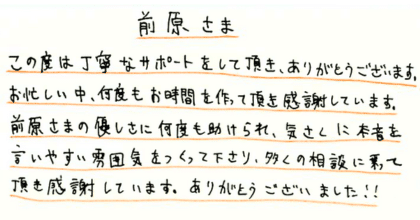 前原さま
この度は丁寧なサポートをして頂き、ありがとうございます。
お忙しい中、何度もお時間を作って頂き感謝しています。
前原さまの優しさに何度も助けられ、気さくに本音を
言いやすい雰囲気をつくって下さり、多くの相談に乗って
頂き感謝しています。ありがとうございました!!